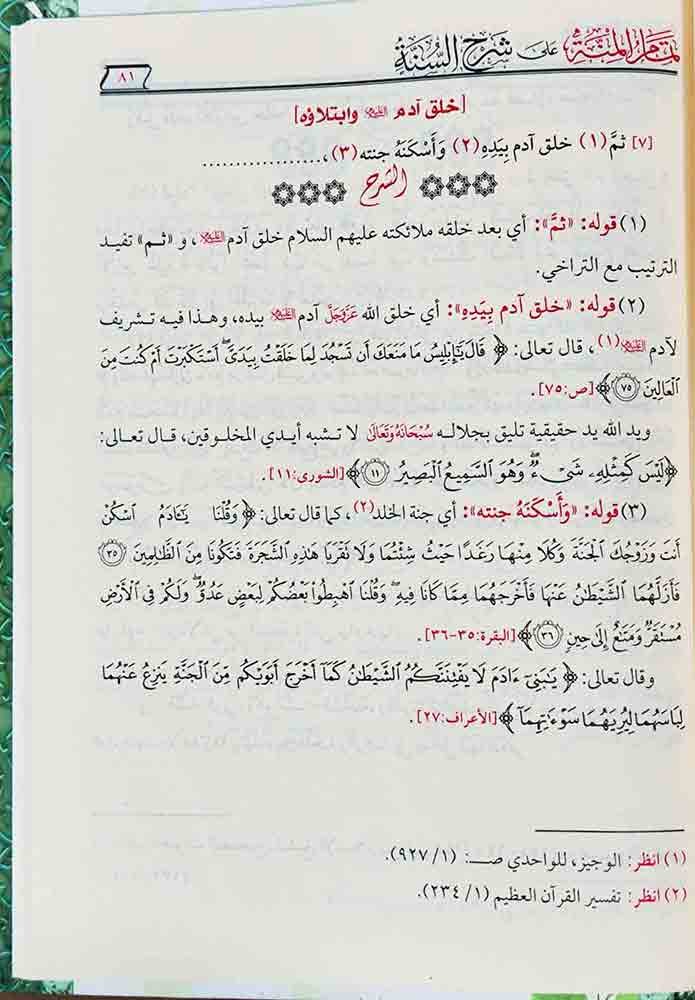 تمام المنة في على شرح السنة
٨١
[خلق آدم عليه السلام وابتلاؤه]
[٧] ثمَّ (١) خلق آدم بِيَدِهِ (٢) وَأَسْكَنَهُ جنته (٣)، ....................
الشرح
(١) قوله: «ثمَّ»: أي بعد خلقه ملائكته عليهم السلام خلق آدم عليه السلام، و «ثم» تفيد
الترتيب مع التراخي.
(٢) قوله: «خلق آدم بِيَدِهِ»: أي خلق الله عَزَّوَجَلَّ آدم عليه السلام بيده، وهذا فيه تشريف
لآدم عليه السلام (١)، قال تعالى: ﴿ قَالَ يَٰٓإِبْلِيسُ مَا مَنَعَكَ أَن تَسْجُدَ لِمَا خَلَقْتُ بِيَدَىَّ ۖ أَسْتَكْبَرْتَ أَمْ كُنتَ مِنَ
ٱلْعَالِينَ ٧٥ ﴾ [ص:٧٥].
ويد الله يد حقيقية تليق بجلاله سُبْحَانَهُ وَتَعَالَىٰ لا تشبه أيدي المخلوقين، قال تعالى:
﴿ لَيْسَ كَمِثْلِهِۦ شَىْءٌ ۖ وَهُوَ ٱلسَّمِيعُ ٱلْبَصِيرُ ١١ ﴾ [الشورى:١١].
(٣) قوله: «وَأَسْكَنَهُ جنته»: أي جنة الخلد (٢)، كما قال تعالى: ﴿ وَقُلْنَا يَٰٓـَٔادَمُ ٱسْكُنْ
أَنتَ وَزَوْجُكَ ٱلْجَنَّةَ وَكُلَا مِنْهَا رَغَدًا حَيْثُ شِئْتُمَا وَلَا تَقْرَبَا هَٰذِهِ ٱلشَّجَرَةَ فَتَكُونَا مِنَ ٱلظَّٰلِمِينَ ٣٥
فَأَزَلَّهُمَا ٱلشَّيْطَٰنُ عَنْهَا فَأَخْرَجَهُمَا مِمَّا كَانَا فِيهِ ۖ وَقُلْنَا ٱهْبِطُوا۟ بَعْضُكُمْ لِبَعْضٍ عَدُوٌّ ۖ وَلَكُمْ فِى ٱلْأَرْضِ
مُسْتَقَرٌّ وَمَتَٰعٌ إِلَىٰ حِينٍ ٣٦ ﴾ [البقرة:٣٥-٣٦].
وقال تعالى: ﴿ يَٰبَنِىٓ ءَادَمَ لَا يَفْتِنَنَّكُمُ ٱلشَّيْطَٰنُ كَمَآ أَخْرَجَ أَبَوَيْكُم مِّنَ ٱلْجَنَّةِ يَنزِعُ عَنْهُمَا
لِبَاسَهُمَا لِيُرِيَهُمَا سَوْءَٰتِهِمَآ ﴾ [الأعراف:٢٧].
(١) انظر: الوجيز، للواحدي صـ: (١/ ٩٢٧).
(٢) انظر: تفسير القرآن العظيم (١/ ٢٣٤).